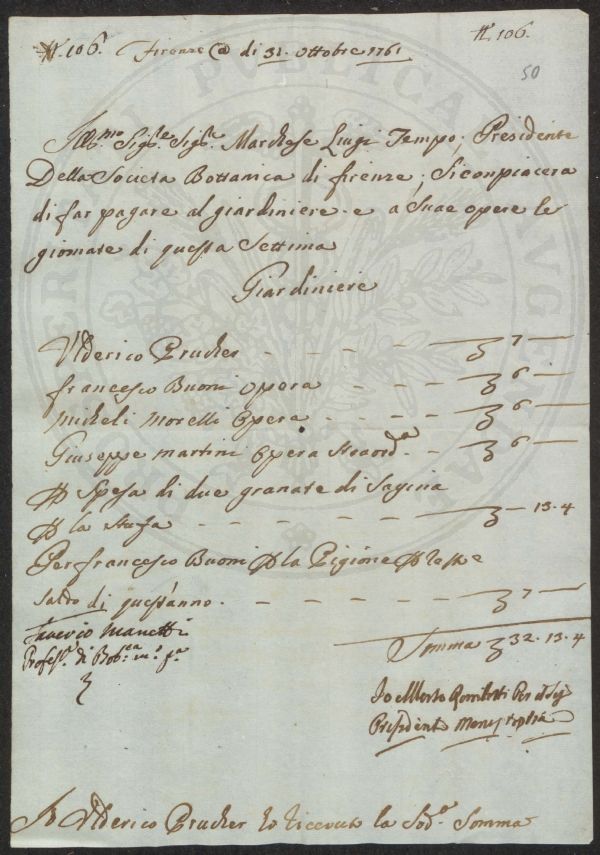 N. 106. Firenze @ di 31. Ottobre 1761
N. 106.
50
Ill.mo Sig.re Sig.re Marchese Luigi Tempo; Presidente
Della Società Bottanica di firenze; Si conpiacera
di far pagare al giardiniere e a Suae opere le
giornate di questa Settima
Giardiniere
Ulderico Prucker - - - - 7 -
francesco Buoni opera - - - - 6 -
Micheli Morelli Opera - - - - 6 -
Giuseppe martini Opera Straord.a - 6 -
P Spesa di due granate di Sagina
P la Stufa - - - - - - 13.4
Per francesco Buoni P la Pigione P reste
Saldo di quest'anno - - - - - 7 -
Saverio Manetti
Profess.e di Bot.ca m.o p.a
Somma 32.13.4
Io Alberto Per il Sig.
Presidente Mano propria
Io Ulderico Prucker ho riceuto la Sod.a Somma